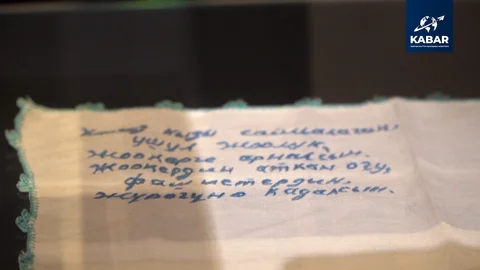 KABAR
кызы саймалаган,
ушул жоолук,
жоокерге арналсын.
Жоокердин аткан огу,
фашисттердин,
жүрөгүнө кадалсын.